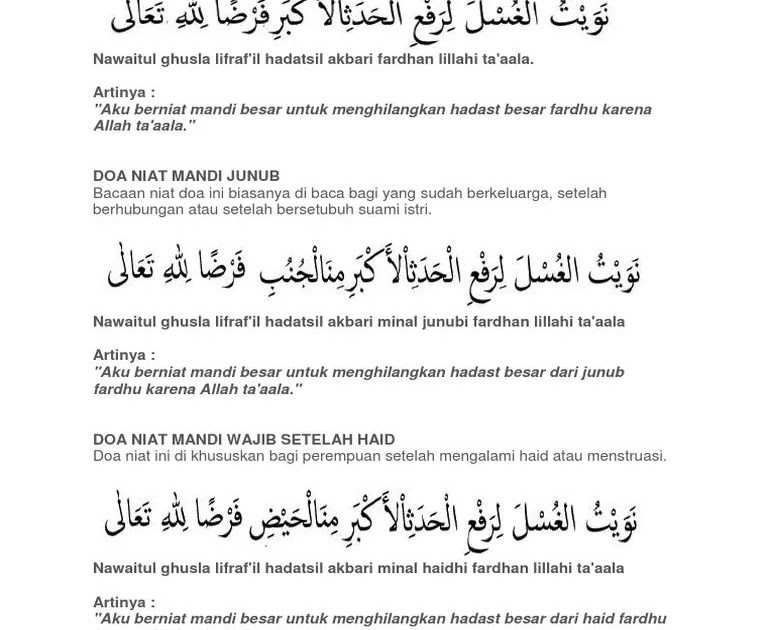 نَوَيْتُ الْغُسْلَ لِرَفْعِ الْحَدَثِ اْلاَكْبَرِ فَرْضًا لِلّٰهِ تَعَالٰى
Nawaitul ghusla lifraf'il hadatsil akbari fardhan lillahi ta'aala.
Artinya :
"Aku berniat mandi besar untuk menghilangkan hadast besar fardhu karena
Allah ta'aala."
DOA NIAT MANDI JUNUB
Bacaan niat doa ini biasanya di baca bagi yang sudah berkeluarga, setelah
berhubungan atau setelah bersetubuh suami istri.
نَوَيْتُ الْغُسْلَ لِرَفْعِ الْحَدَثِ اْلأَكْبَرِ مِنَالْجُنُبِ فَرْضًا لِلّٰهِ تَعَالٰى
Nawaitul ghusla lifraf'il hadatsil akbari minal junubi fardhan lillahi ta'aala
Artinya :
"Aku berniat mandi besar untuk menghilangkan hadast besar dari junub
fardhu karena Allah ta'aala."
DOA NIAT MANDI WAJIB SETELAH HAID
Doa niat ini di khususkan bagi perempuan setelah mengalami haid atau menstruasi.
نَوَيْتُ الْغُسْلَ لِرَفْعِ الْحَدَثِ اْلأَكْبَرِ مِنَالْحَيْضِ فَرْضًا لِلّٰهِ تَعَالٰى
Nawaitul ghusla lifraf'il hadatsil akbari minal haidhi fardhan lillahi ta'aala
Artinya :
"Aku berniat mandi besar untuk menghilangkan hadast besar dari haid fardhu